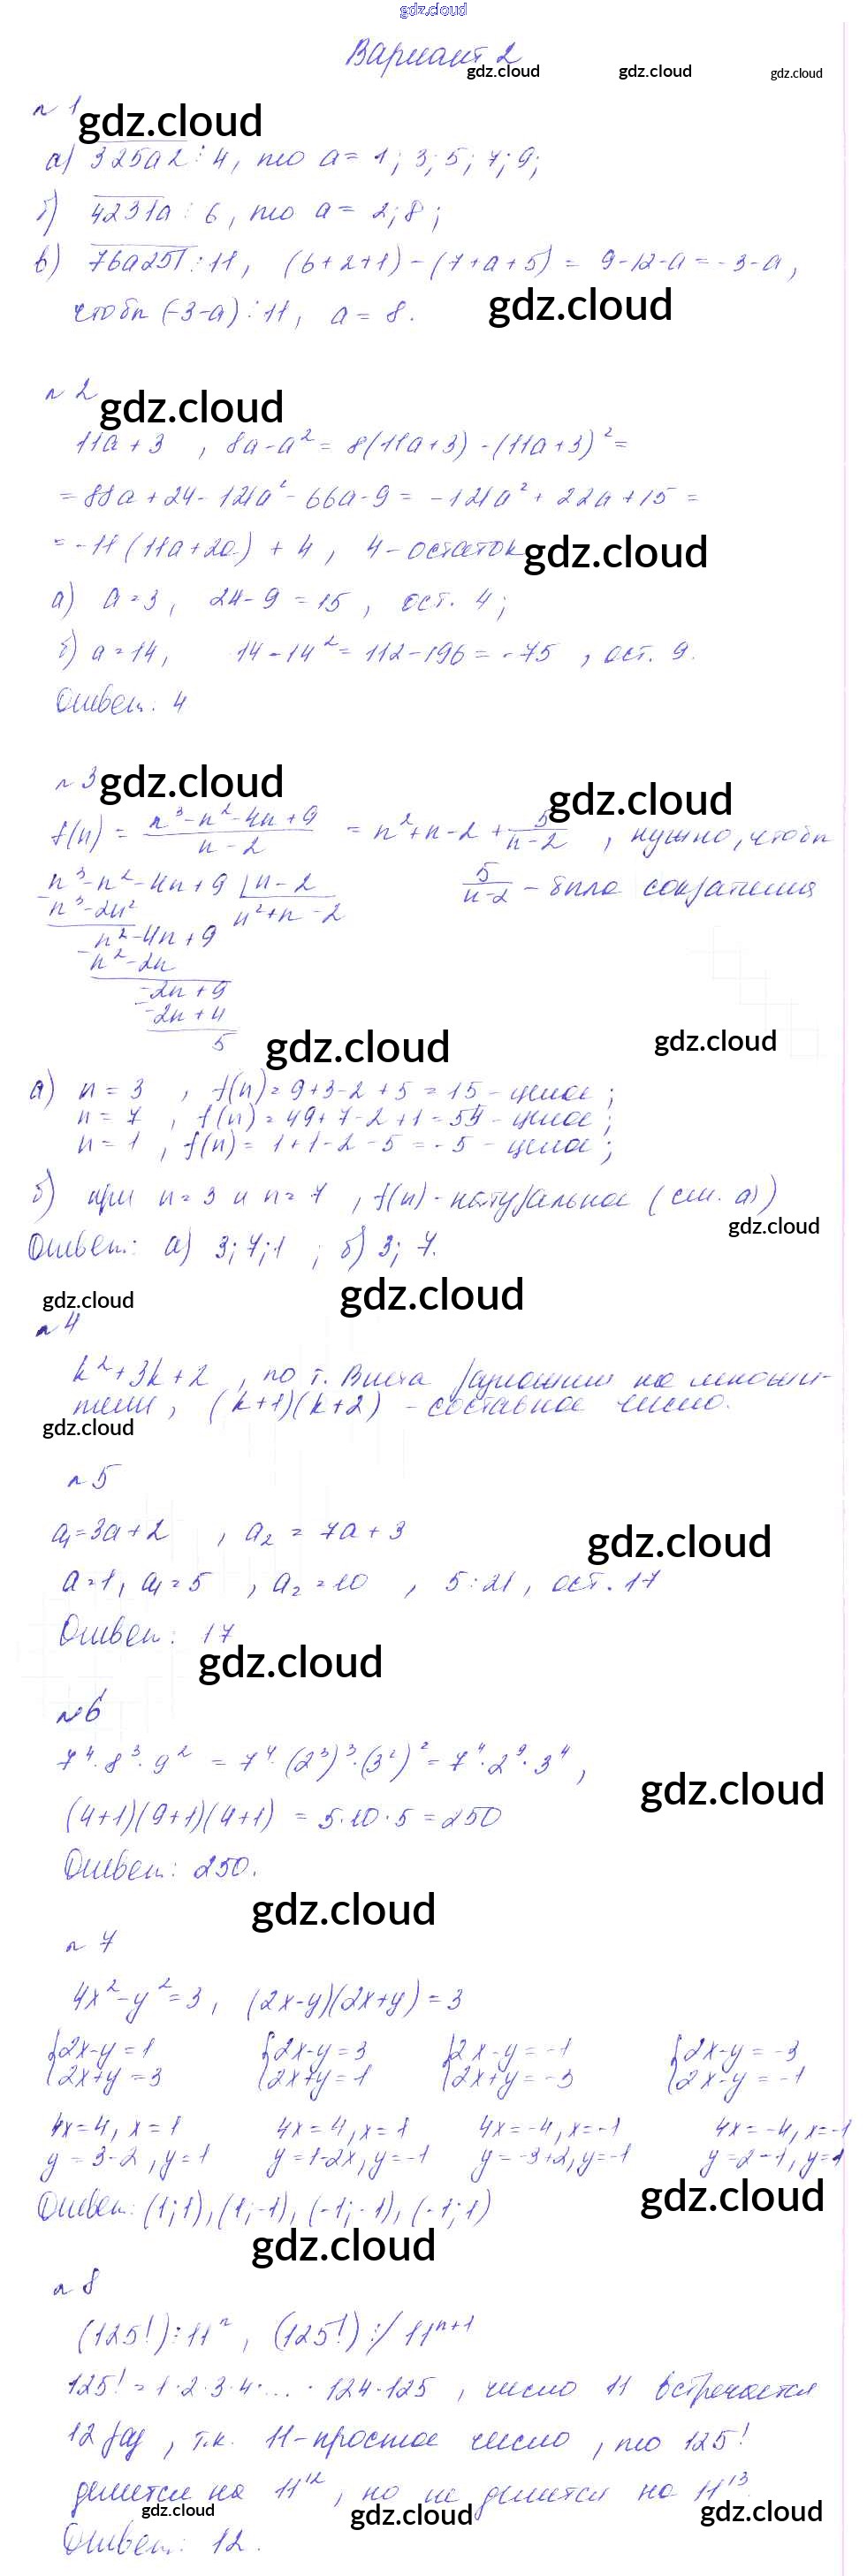 gdz.cloud
Вариант 2
gdz.cloud gdz.cloud gdz.cloud
n 1
gdz.cloud
а) 325a2 ⋮ 4, то a = 1; 3; 5; 7; 9;
б) 4231a ⋮ 6, то a = 2; 8;
в) 76a251 ⋮ 11, (6+2+1) - (7+a+5) = 9-12-a = -3-a,
чтобы (-3-a) ⋮ 11, a = 8.
gdz.cloud
n 2
gdz.cloud
11a + 3 , 8a - a² = 8(11a+3) - (11a+3)² =
= 88a + 24 - 121a² - 66a - 9 = -121a² + 22a + 15 =
= -11(11a+2a) + 4, 4 - остаток
gdz.cloud
а) a = 3, 24 - 9 = 15, ост. 4;
б) a = 14, 14 - 14² = 112 - 196 = -75, ост. 9.
Ответ: 4
n 3
gdz.cloud
gdz.cloud
f(n) = (n³-n²-4n+9)/(n-2) = n²+n-2 + 5/(n-2), нужно, чтобы
5/(n-2) - было сократимо
n³-n²-4n+9 | n-2
n³-2n² n²+n-2
n²-4n+9
n²-2n
-2n+9
-2n+4
5
gdz.cloud
gdz.cloud
а) n = 3, f(n) = 9+3-2+5 = 15 - целое;
n = 7, f(n) = 49+7-2+1 = 54 - целое;
n = 1, f(n) = 1+1-2-5 = -5 - целое;
б) при n = 3 и n = 7, f(n) - натуральное (см. а))
gdz.cloud
Ответ: а) 3; 7; 1; б) 3; 7.
gdz.cloud
gdz.cloud
n 4
k²+3k+2, по т. Виета разложим на множи-
тели, (k+1)(k+2) - составное число.
gdz.cloud
n 5
a₁=3a+2, a₂ = 7a+3
gdz.cloud
a=1, a₁=5, a₂=10, 5:21, ост. 17
Ответ: 17
gdz.cloud
№6
7⁴·8³·9² = 7⁴·(2³)³·(3²)² = 7⁴·2⁹·3⁴,
gdz.cloud
(4+1)(9+1)(4+1) = 5·10·5 = 250
Ответ: 250.
gdz.cloud
n 7
4x²-y²=3, (2x-y)(2x+y) = 3
{2x-y=1 {2x-y=3 {2x-y=-1 {2x-y=-3
{2x+y=3 {2x+y=1 {2x+y=-3 {2x-y=-1
4x=4, x=1 4x=4, x=1 4x=-4, x=-1 4x=-4, x=-1
y=3-2, y=1 y=1-2x, y=-1 y=-3+2, y=-1 y=2-1, y=1
gdz.cloud
Ответ: (1;1), (1;-1), (-1;-1), (-1;1)
gdz.cloud
n 8
(125!) ⋮ 11ⁿ, (125!) ⋮/ 11ⁿ⁺¹
125! = 1·2·3·4·...·124·125, число 11 встречается
12 раз, т.к. 11 - простое число, то 125!
делится на 11¹², но не делится на 11¹³.
gdz.cloud gdz.cloud gdz.cloud
Ответ: 12.